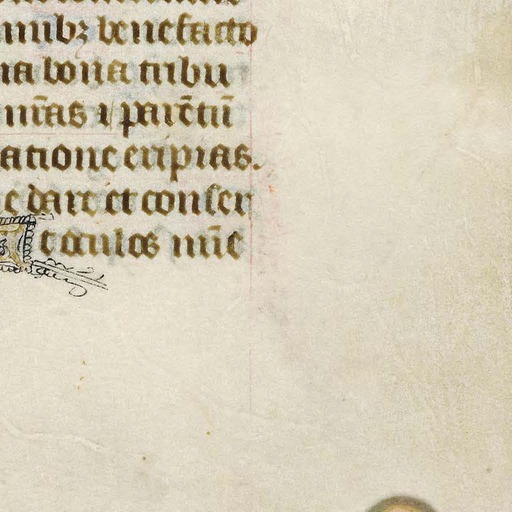 nibꝫ benefacto
na bona tribu
nr̄as ⁊ parētū
atione eripias.
e dare et conser
t oculos mīe